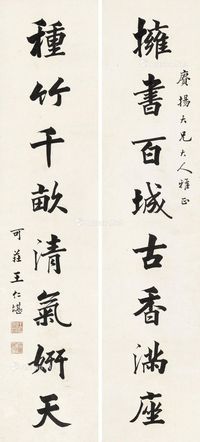 賡揚大兄大人雅正
擁書百城古香滿座
種竹千畝清氣妍天
可莊王仁堪